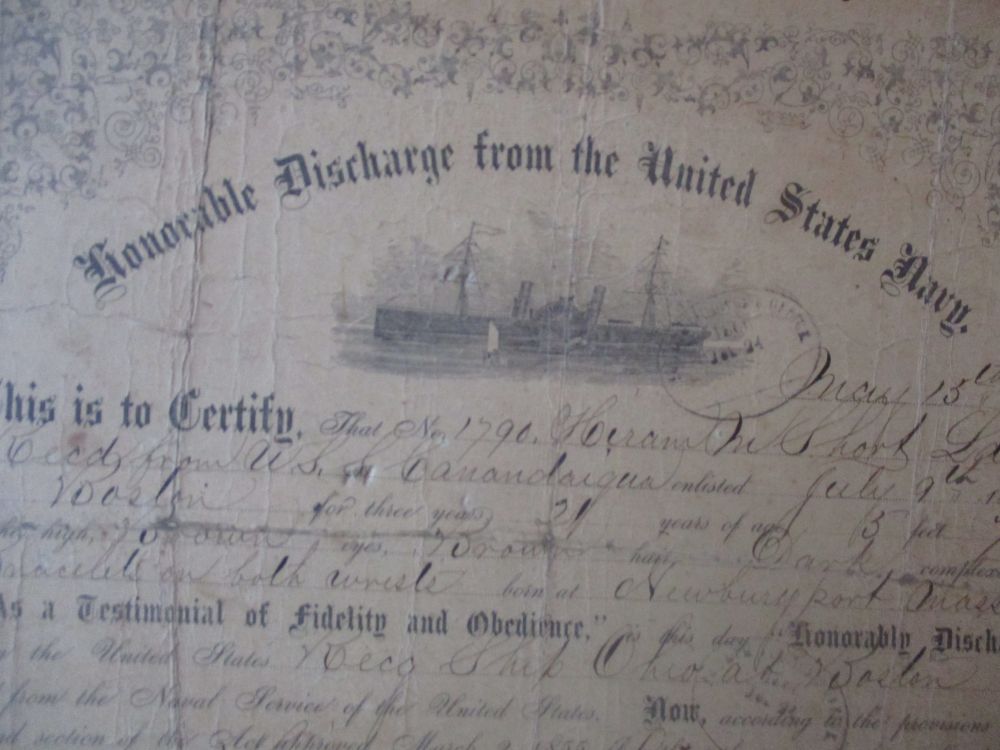 Honorable Discharge from the United States Navy.
May 15th
This is to Certify, That No 1790. Hiram M Short
Recd from U.S.S. Canandaigua enlisted July 9th
Boston for three years 21 years of age 5 feet
high, Brown eyes, Brown hair Dark complex
Bracelets on both wrists born at Newburyport Mass
As a Testimonial of Fidelity and Obedience." is this day "Honorably Disch
the United States Recg Ship Ohio at Boston
from the Naval Service of the United States. Now, according to the provisions
section of the Act approved March 2, 1855